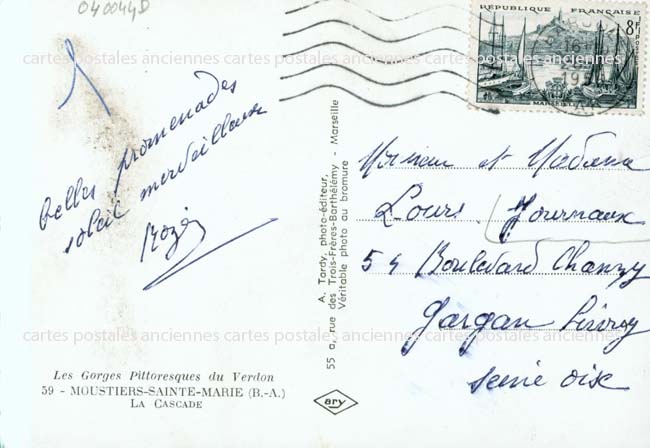 040044D
RÉPUBLIQUE FRANÇAISE
8F
POSTES
MARSEILLE
cartes postales anciennes cartes postales anciennes cartes postales anciennes
belles promenades
soleil merveilleux
Roger
A. Tardy, photo-éditeur,
55 a, rue des Trois-Frères-Barthélémy - Marseille
Véritable photo au bromure
Monsieur et Madame
Louis Journaux
54 Boulevard Chanzy
Gargan Livry
Seine oise
cartes postales anciennes cartes postales anciennes cartes postales anciennes
cartes postales anciennes cartes postales anciennes cartes postales anciennes
Les Gorges Pittoresques du Verdon
59 - MOUSTIERS-SAINTE-MARIE (B.-A.)
LA CASCADE
ary